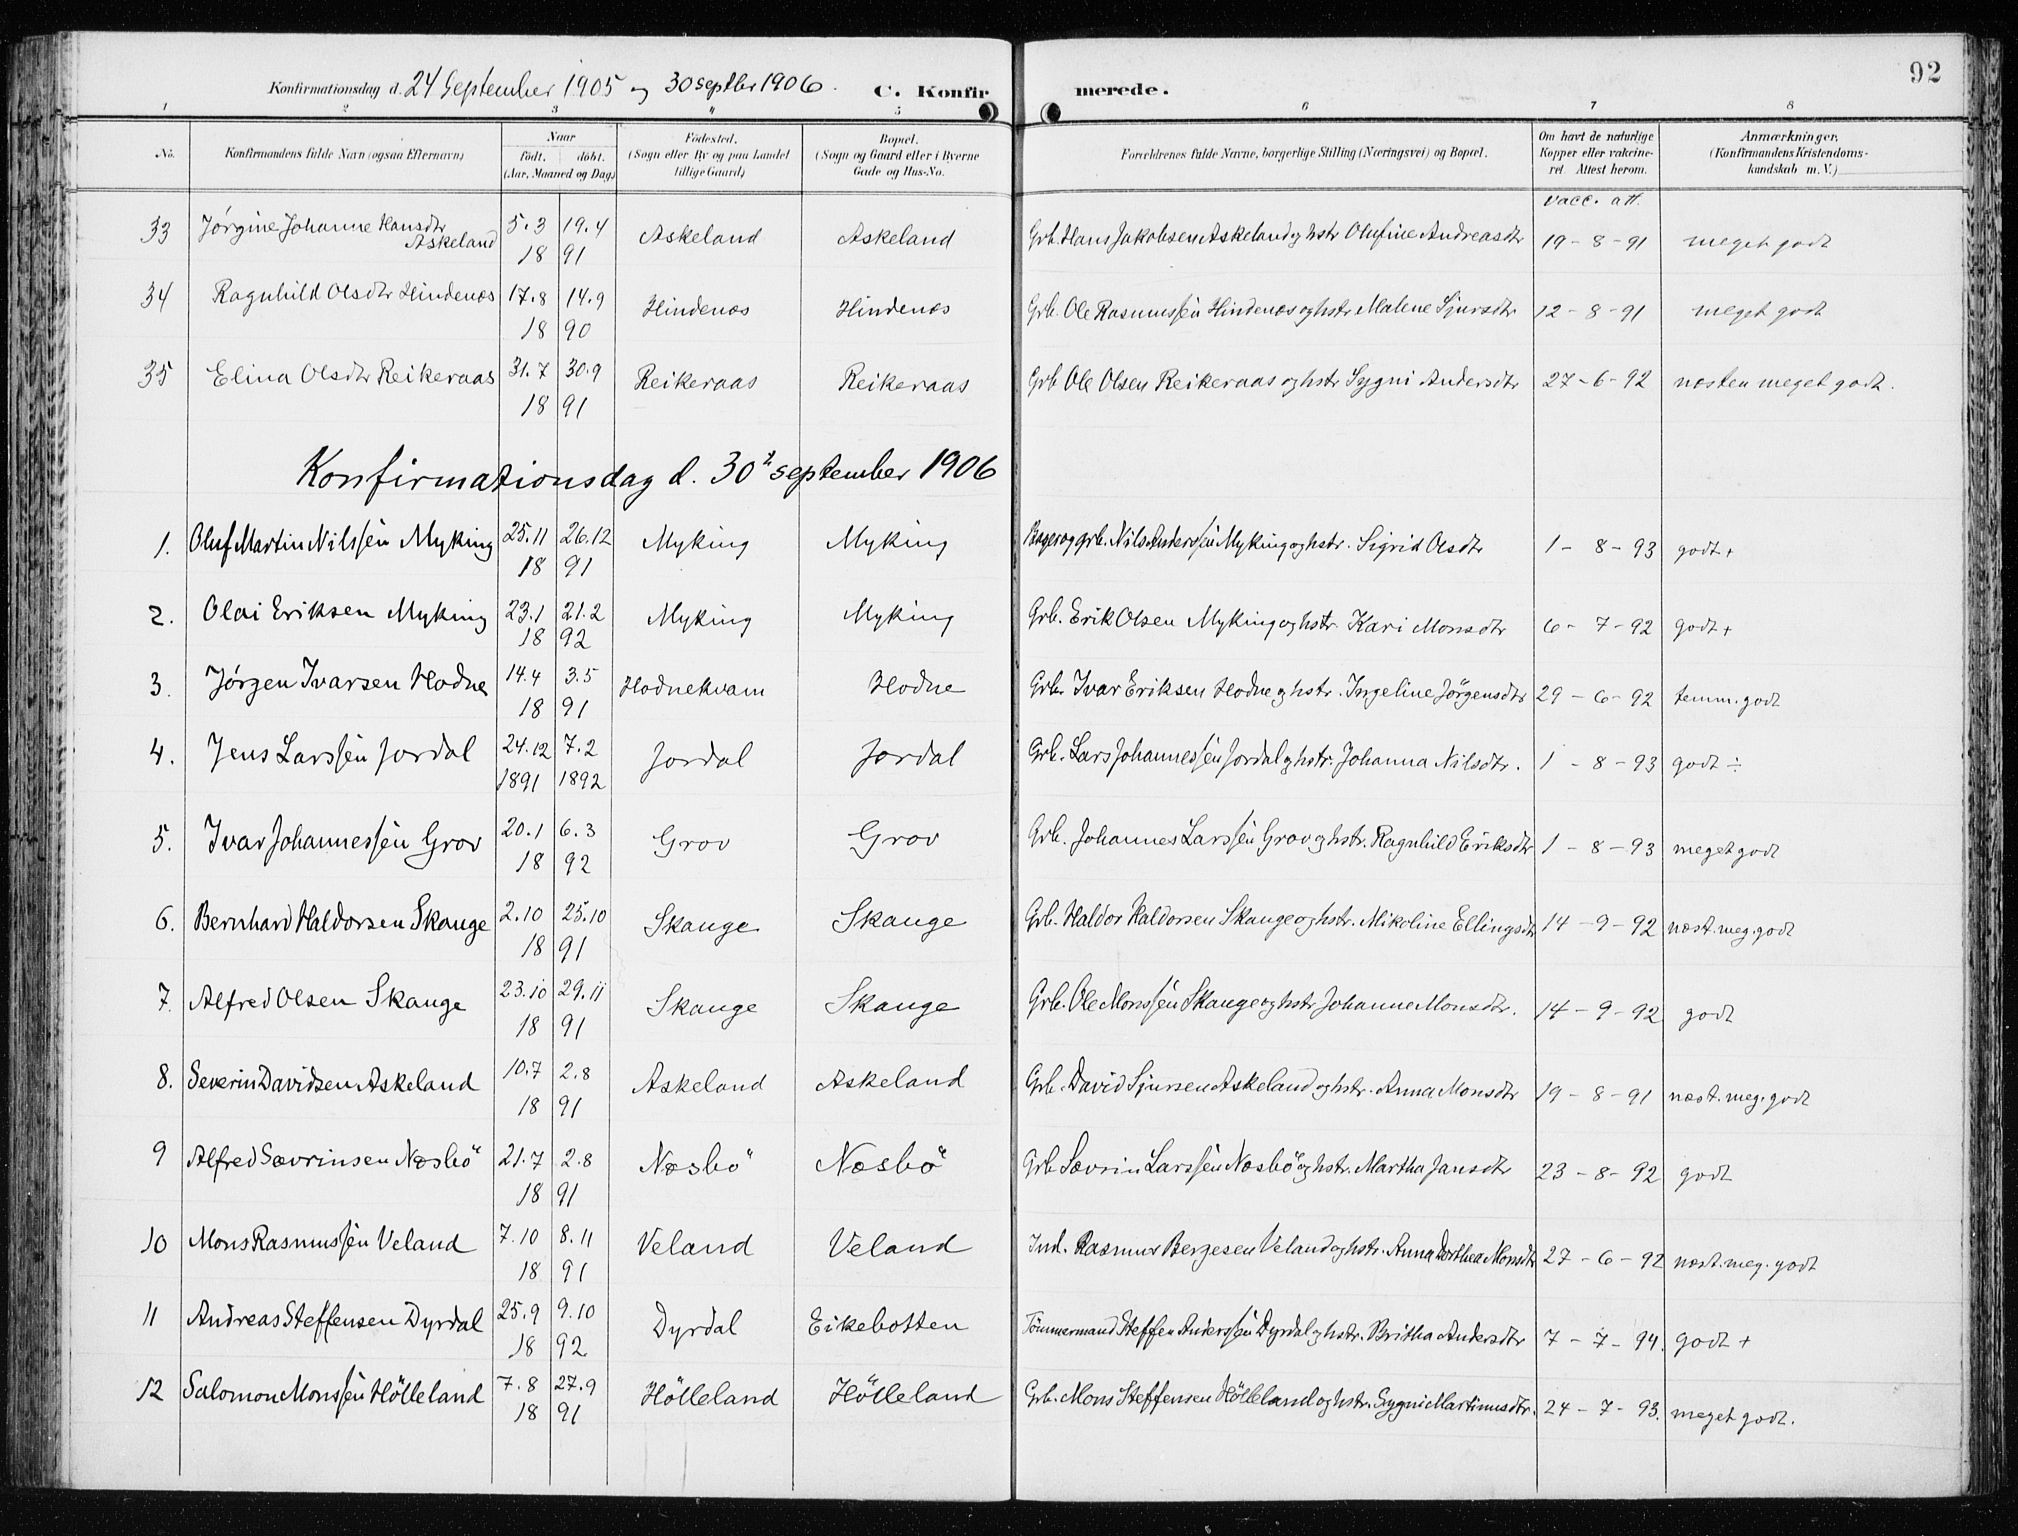 92
Konfirmationsdag d. 24 September 1905 og 30 septbr 1906. C. Konfirmerede.
1 2 3 4 5 6 7 8
No. Konfirmandens fulde Navn (ogsaa Efternavn) Naar født. døbt. (Aar, Maaned og Dag.) Fødested. (Sogn eller By og paa Landet tillige Gaard) Bopæl. (Sogn og Gaard eller i Byerne Gade og Hus-No. Forældrenes fulde Navne, borgerlige Stilling (Næringsvei) og Bopæl. Om havt de naturlige Kopper eller vakcineret. Attest herom. Anmærkninger. (Konfirmandens Kristendomskundskab m. V.)
vacc. att.
33 Jørgine Johanne Hansdtr Askeland 5.3 19.4 18 91 Askeland Askeland Grb. Hans Jakobsen Askeland og hstr Olufine Andreasdtr 19-8-91 meget godt
34 Ragnhild Olsdtr Hindenæs 17.8 14.9 18 90 Hindenæs Hindenæs Grb. Ole Rasmussen Hindenæs og hstr Malene Sjursdtr 12-8-91 meget godt
35 Elina Olsdtr Reikeraas 31.7 30.9 18 91 Reikeraas Reikeraas Grb Ole Olsen Reikeraas og hstr Sygni Andersdtr 27-6-92 næsten meget godt.
Konfirmationsdag d. 30 september 1906
1. Oluf Martin Nilssen Myking 25.11 26.12 18 91 Myking Myking Nils Anderssen Myking og hstr. Sigrid Olsdtr 1-8-93 godt +
2. Olai Eriksen Myking 23.1 21.2 18 92 Myking Myking Grb. Erik Olsen Myking og hstr. Kari Monsdtr 6-7-92 godt +
3. Jørgen Ivarsen Hodne 14.4 3.5 18 91 Hodnekvam Hodne Grb. Ivar Eriksen Hodne og hstr. Ingeline Jørgensdtr 29-6-92 temm. godt
4. Jens Larssen Jordal 24.12 7.2 1891 1892 Jordal Jordal Grb. Lars Johannessen Jordal og hstr. Johanna Nilsdtr. 1-8-93 godt ÷
5. Ivar Johannessen Grov 20.1 6.3 18 92 Grov Grov Grb. Johannes Larssen Grov og hstr. Ragnhild Eriksdtr 1-8-93 meget godt
6. Bernhard Haldorsen Skauge 2.10 25.10 18 91 Skauge Skauge Grb. Haldor Haldorsen Skauge og hstr. Mikoline Ellingsdtr 14-9-92 næst. meg. godt
7. Alfred Olsen Skauge 23.10 29.11 18 91 Skauge Skauge Grb. Ole Monssen Skauge og hstr Johanne Monsdtr. 14-9-92 godt
8. Severin Davidsen Askeland 10.7 2.8 18 91 Askeland Askeland Grb. David Sjursen Askeland og hstr. Anna Monsdtr 19-8-91 næst. meg. godt
9 Alfred Sævrinsen Næsbö 21.7 2.8 18 91 Næsbö Næsbö Grb Sævrin Larssen Næsbö og hstr. Martha Jansdtr 23-8-92 godt
10 Mons Rasmussen Veland 7.10 8.11 18 91 Veland Veland Ind. Rasmus Bergesen Veland og hstr. Anna Dorthea Monsdtr 27-6-92 næst. meg. godt
11 Andreas Steffensen Dyrdal 25.9 9.10 18 92 Dyrdal Eikebotten Tömmermand Steffen Anderssen Dyrdal og hstr. Britha Andersdtr 7-7-94. godt +
12 Salomon Monssen Hölleland 7.8 27.9 18 91 Hölleland Hölleland Grb. Mons Steffensen Hölleland og hstr. Sygni Martinusdtr. 24-7-93. meget godt.